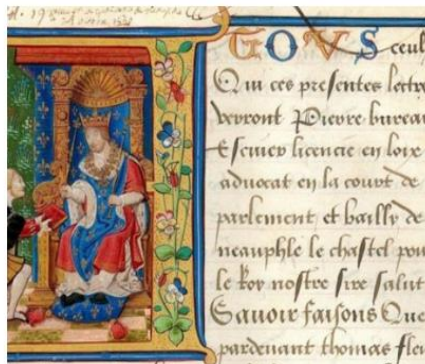 TOVS ceul
Qui ces presentes lettre
verront Pierre bureau
Escuier licencie en loix
aduocat en la court de
parlement et bailly de
neauphle le chastel pou
le Roy nostre sire salut
Sauoir faisons Que
pardeuant thomas fleu